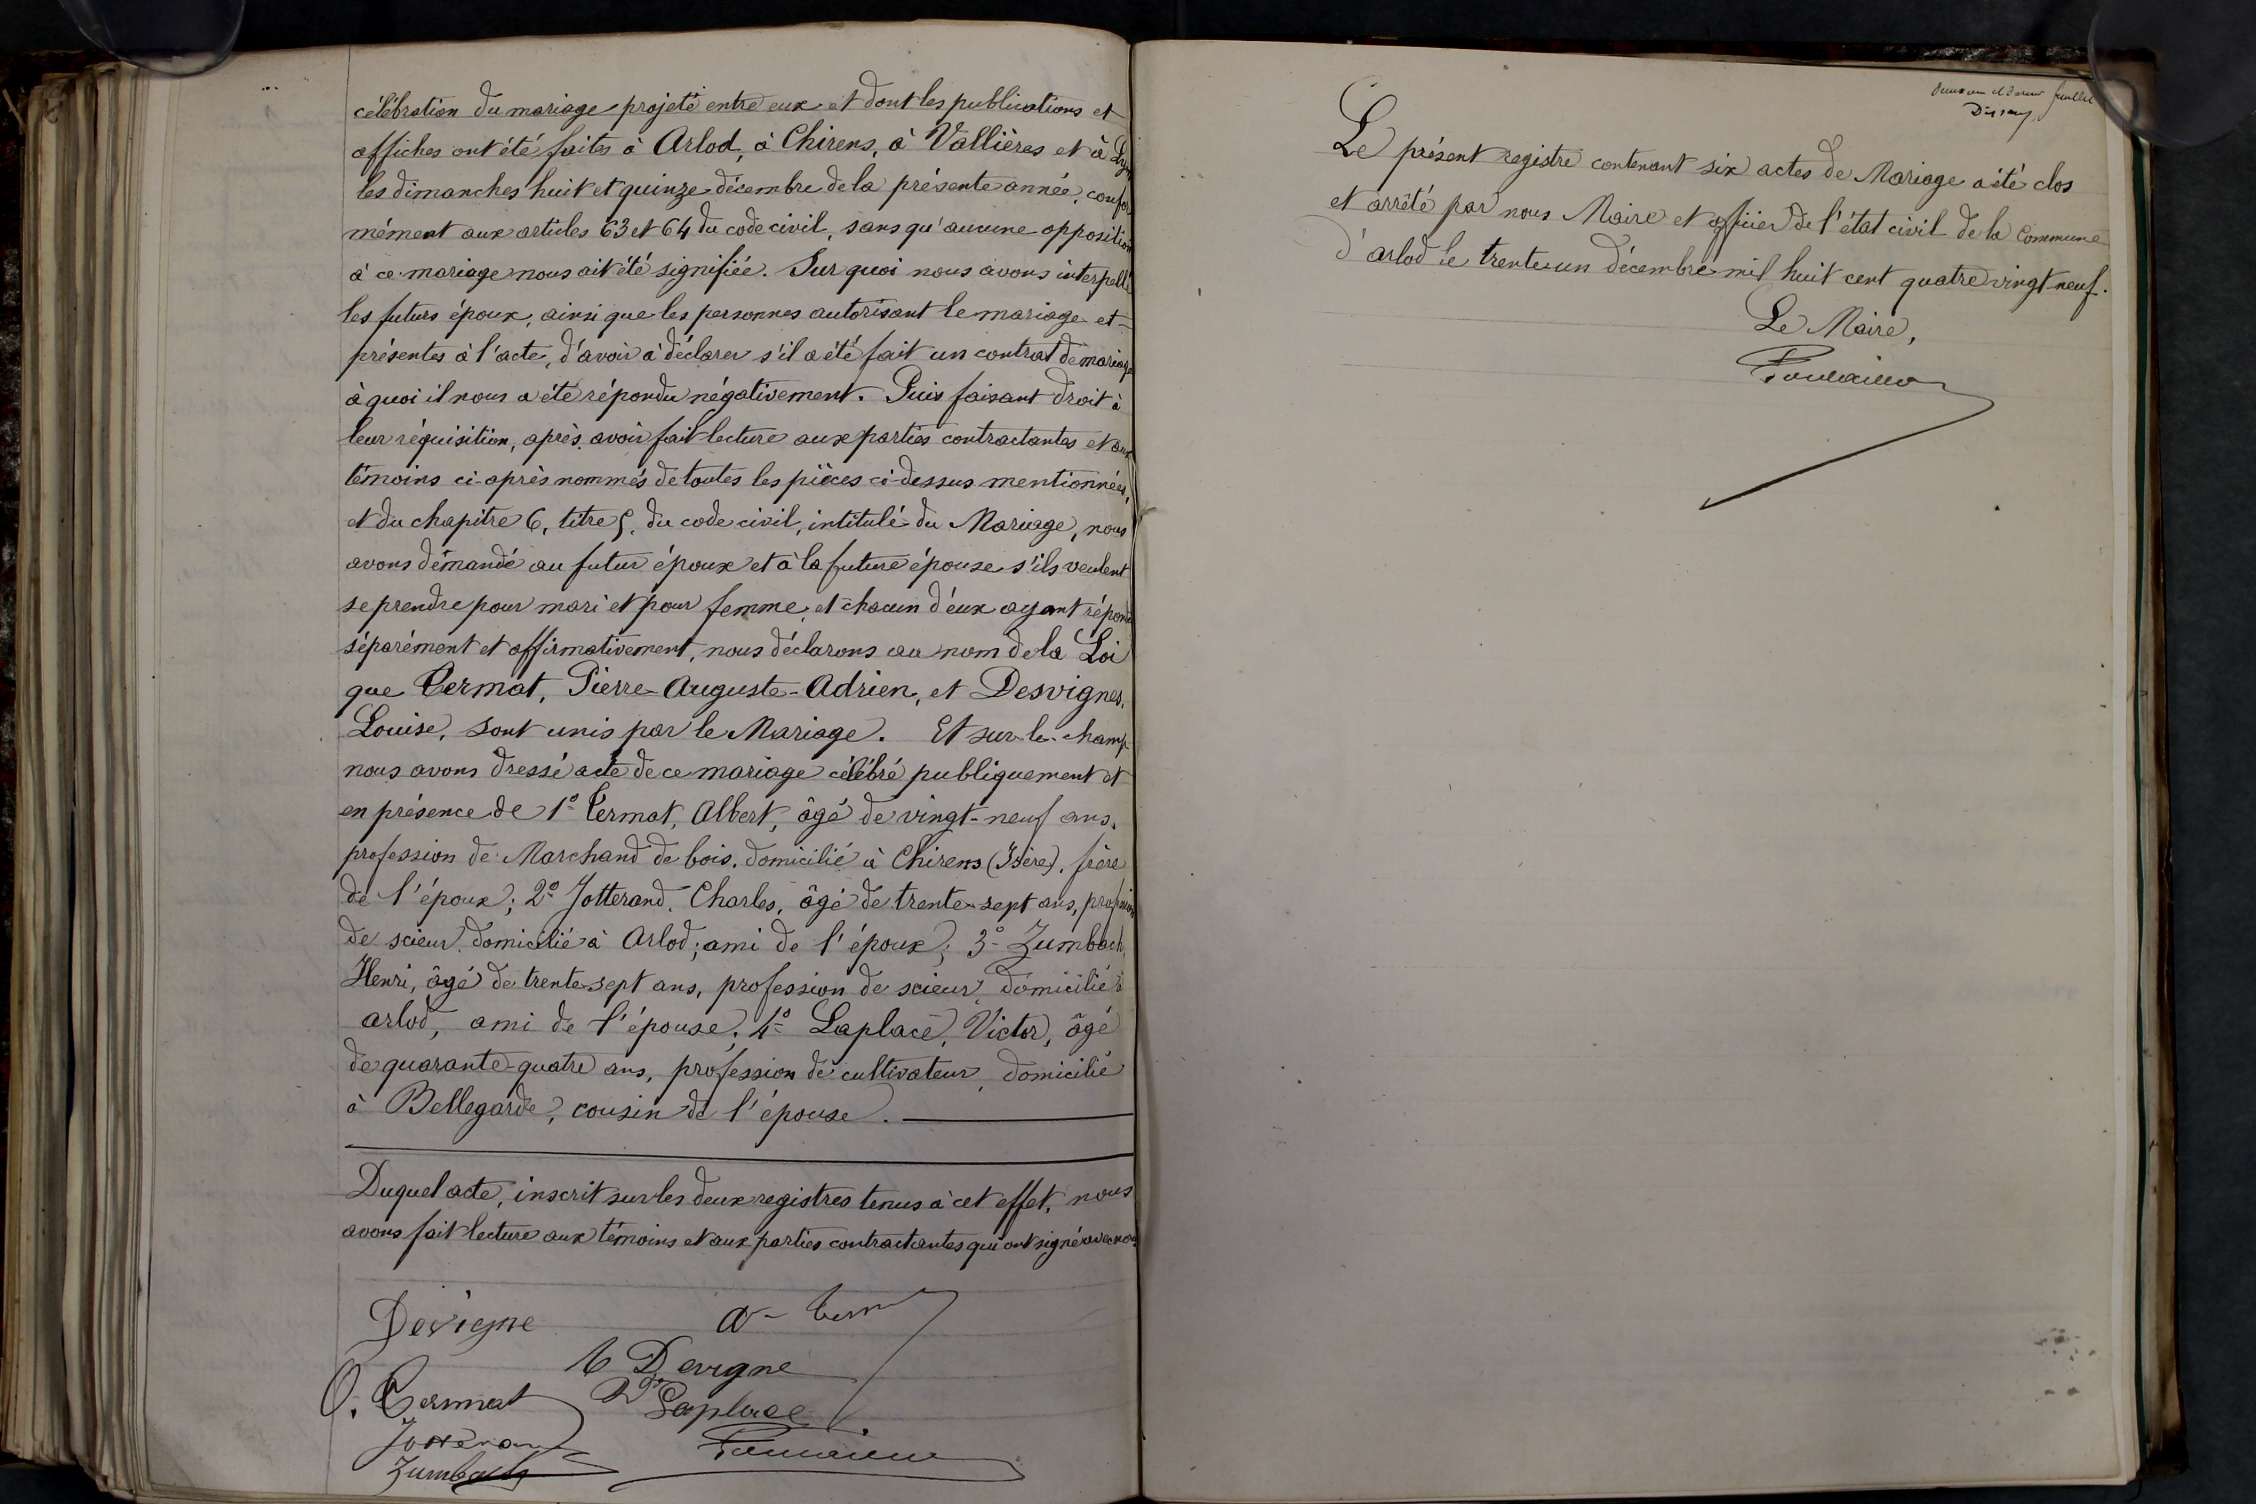 célébration du mariage projeté entre eux et dont les publications et
affiches ont été faites à Arlod, à Chirens, à Vallières et à
les dimanches huit et quinze décembre de la présente année, confor
mément aux articles 63 et 64 du code civil, sans qu'aucune opposition
à ce mariage nous ait été signifiée. Sur quoi nous avons interpellé
les futurs époux, ainsi que les personnes autorisant le mariage et
présentes à l'acte, d'avoir à déclarer s'il a été fait un contrat de mariage
à quoi il nous a été répondu négativement. Puis faisant droit à
leur réquisition, après avoir fait lecture aux parties contractantes et aux
témoins ci-après nommés de toutes les pièces ci-dessus mentionnées,
et du chapitre 6, titre 5, du code civil, intitulé du Mariage, nous
avons demandé au futur époux et à la future épouse s'ils veulent
se prendre pour mari et pour femme, et chacun d'eux ayant répondu
séparément et affirmativement, nous déclarons au nom de la Loi
que Termat, Pierre-Auguste-Adrien, et Desvignes,
Louise, sont unis par le Mariage. Et sur-le-champ
nous avons dressé acte de ce mariage célébré publiquement et
en présence de 1° Termat, Albert, âgé de vingt-neuf ans,
profession de Marchand de bois, domicilié à Chirens (Isère), frère
de l'époux; 2° Jotterand, Charles, âgé de trente-sept ans, profession
de scieur, domicilié à Arlod, ami de l'époux; 3° Zumbach,
Henri, âgé de trente-sept ans, profession de scieur, domicilié à
arlod, ami de l'épouse; 4° Laplace, Victor, âgé
de quarante-quatre ans, profession de cultivateur, domicilié
à Bellegarde, cousin de l'épouse.
Duquel acte, inscrit sur les deux registres tenus à cet effet, nous
avons fait lecture aux témoins et aux parties contractantes qui ont signé avec nous
Devigne
Devigne
Termat
Laplace
Jotterand
Zumbach
Le présent registre contenant six actes de Mariage a été clos
et arrêté par nous Maire et officier de l'état civil de la Commune
d'arlod le trente-un décembre mil huit cent quatre vingt-neuf.
Le Maire,